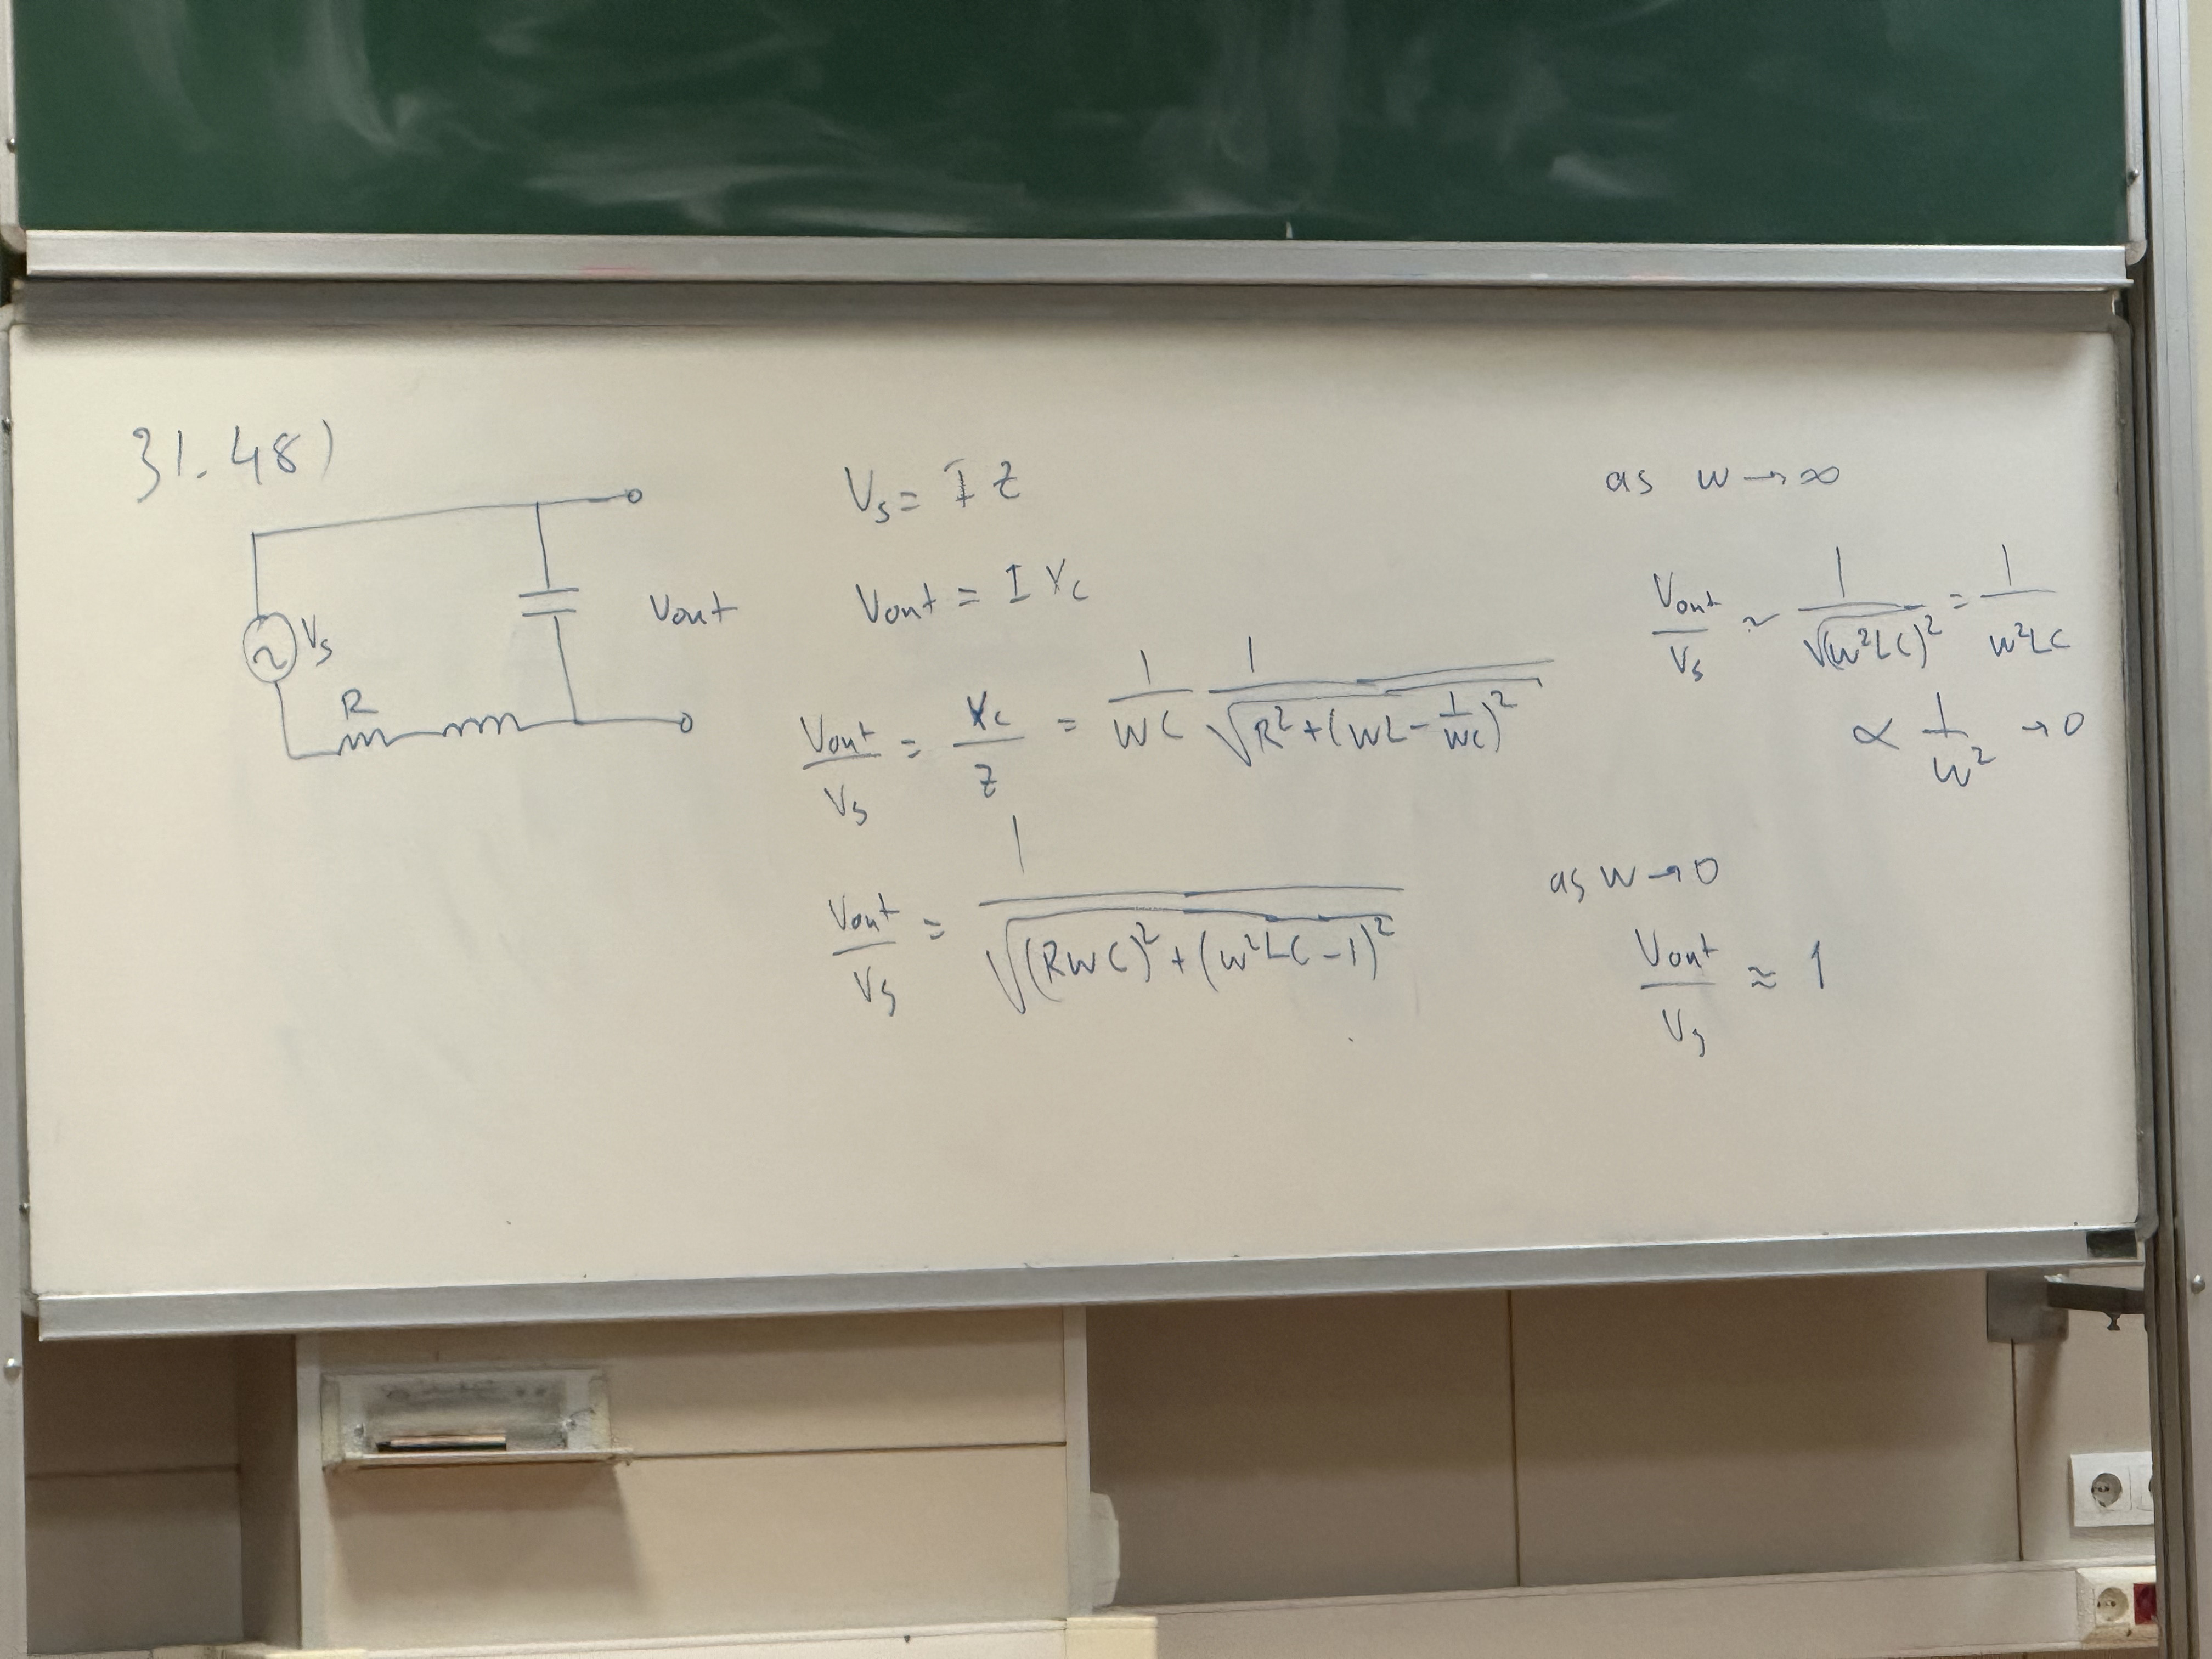 31.48)
Vs
R
Vout
Vs = I Z
Vout = I Xc
Vout/Vs = Xc/Z = 1/WC 1/√(R²+(WL-1/WC)²)
Vout/Vs = 1/√((RWC)²+(W²LC-1)²)
as W→∞
Vout/Vs ~ 1/√(W²LC)² = 1/W²LC
∝ 1/W² →0
as W→0
Vout/Vs ≈ 1